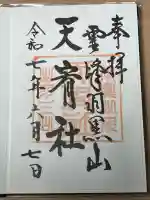 奉拝
霊峰羽黒山
天宥社
令和七年六月七日